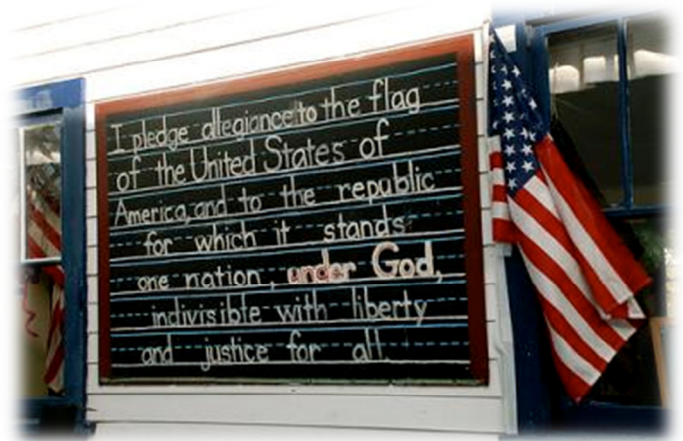 I pledge allegiance to the flag
of the United States of
America, and to the republic
for which it stands
one nation, under God,
indivisible with liberty
and justice for all.